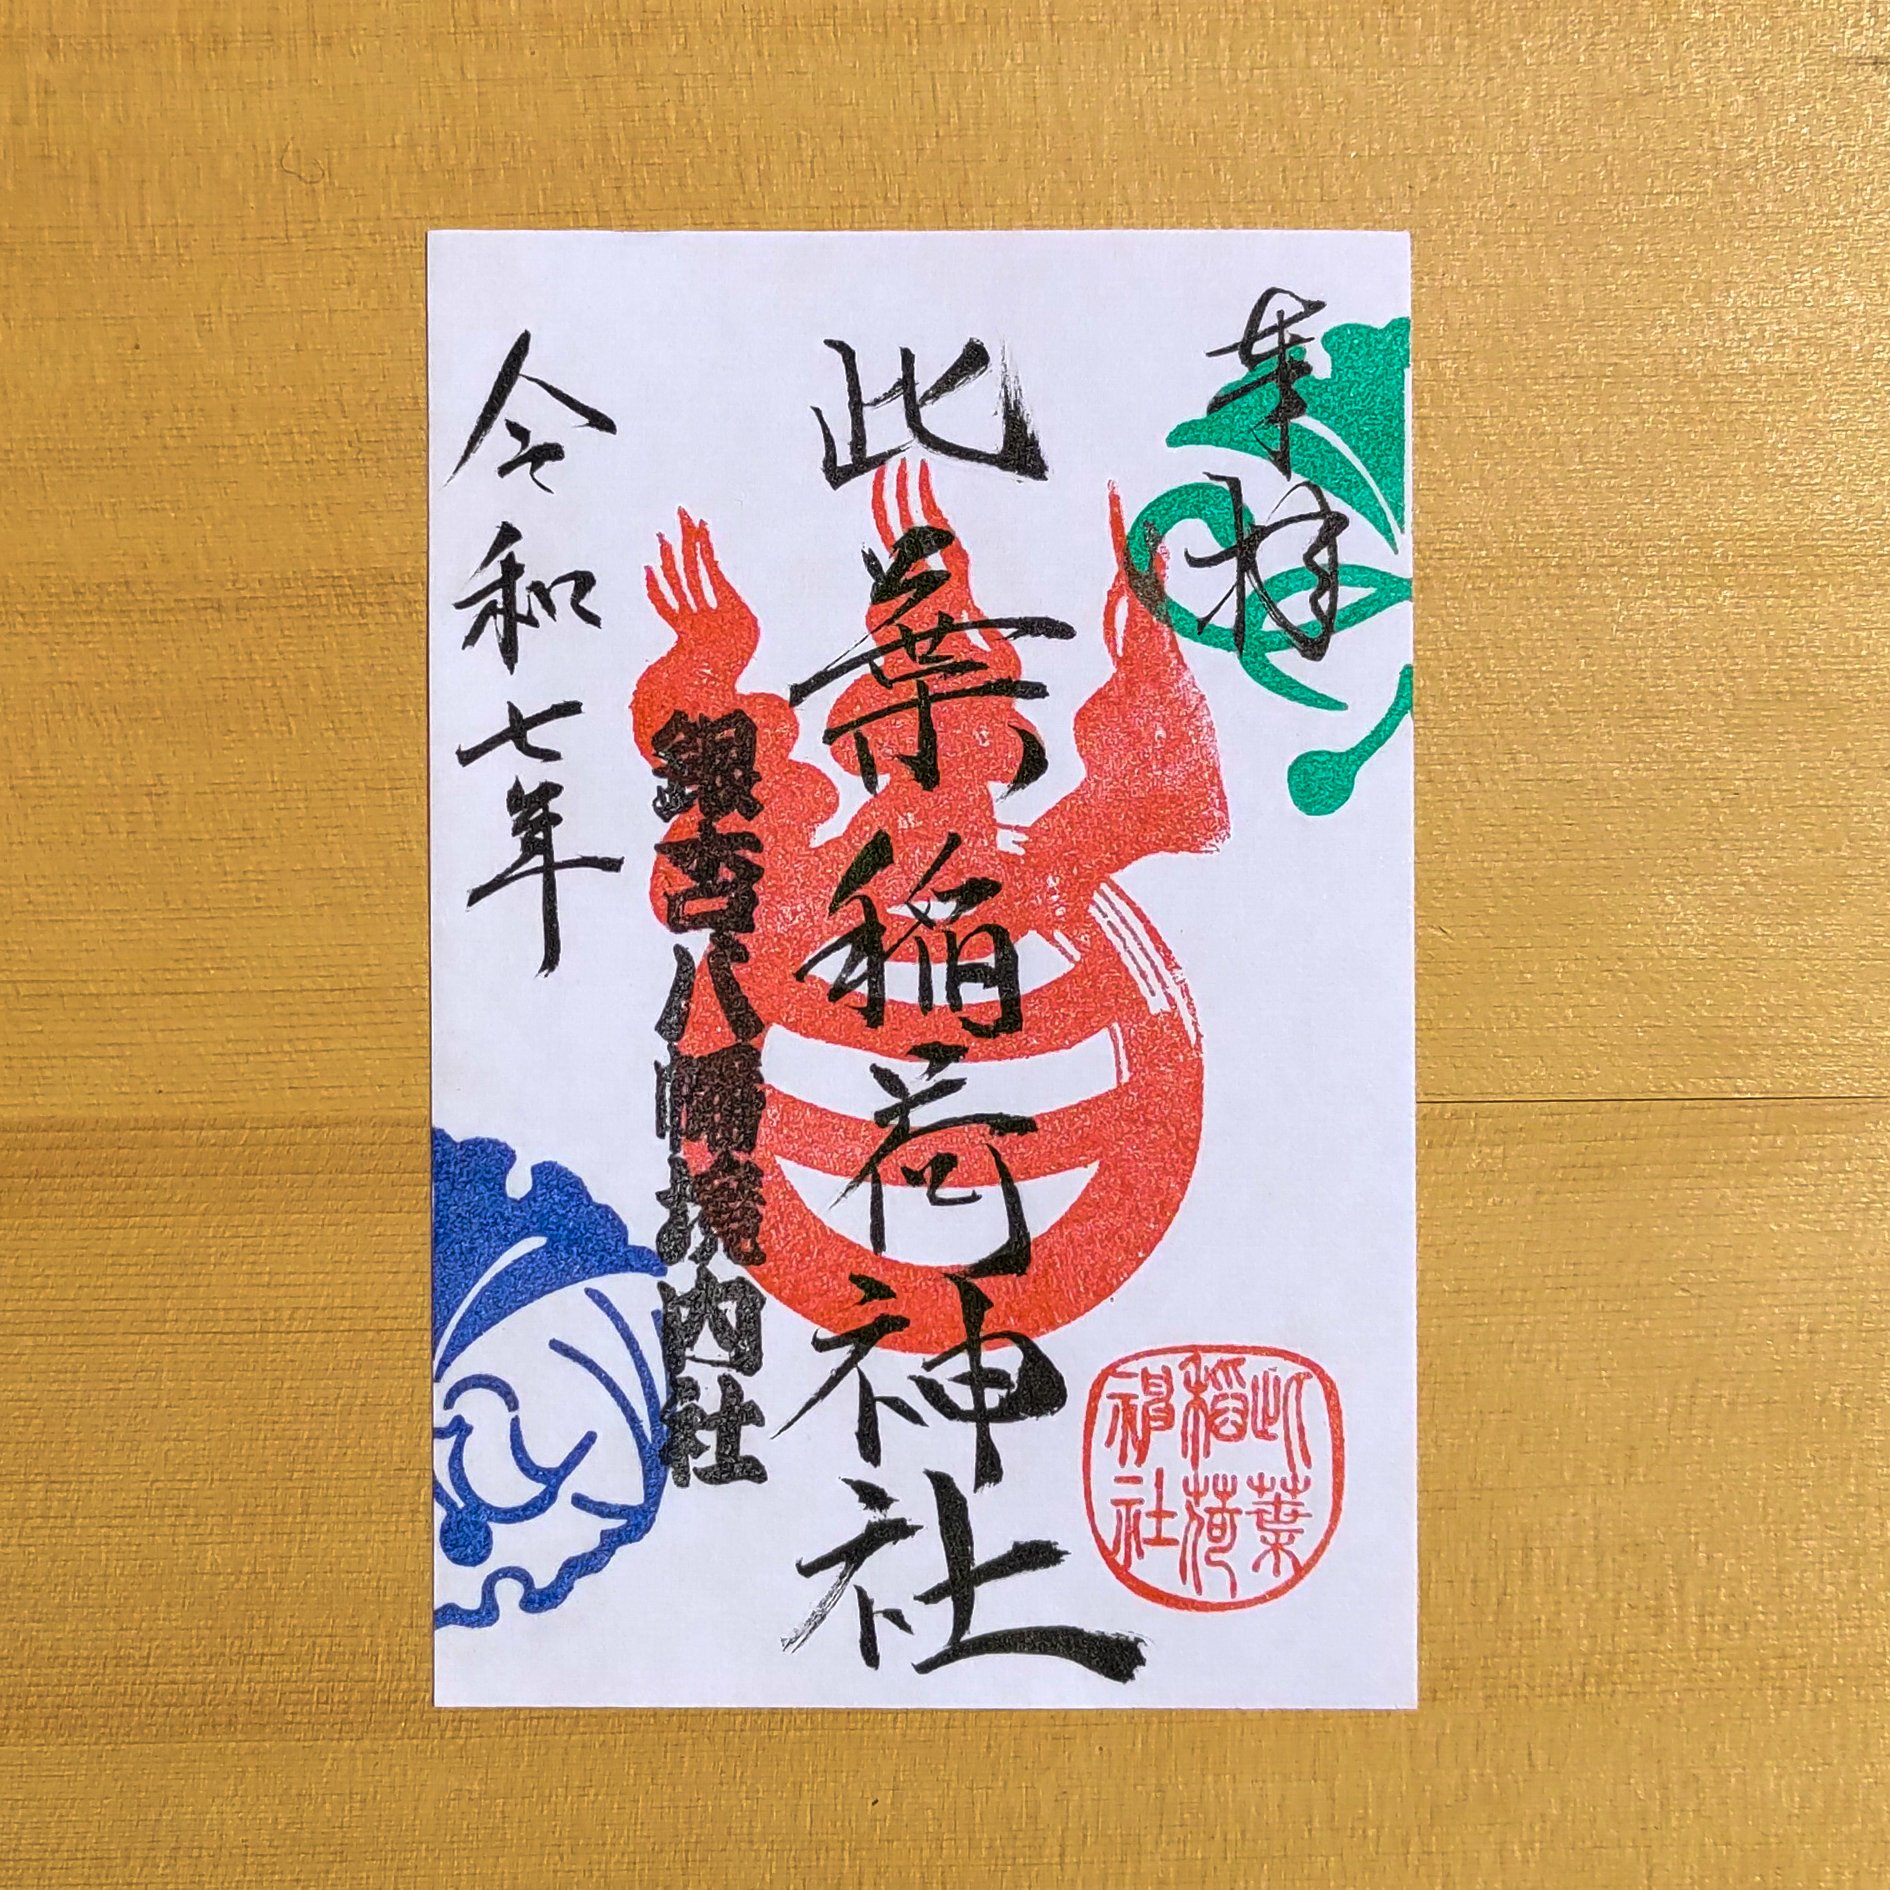 奉拝
此葉稲荷神社
銀杏八幡境内社
令和七年
此葉
稲荷
神社